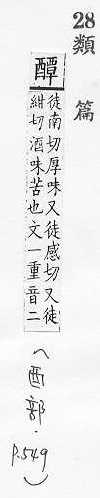 28
類篇
醰
徒南切厚味又徒感切又徒
紺切酒味苦也文一重音二
(酉部.
P.549)